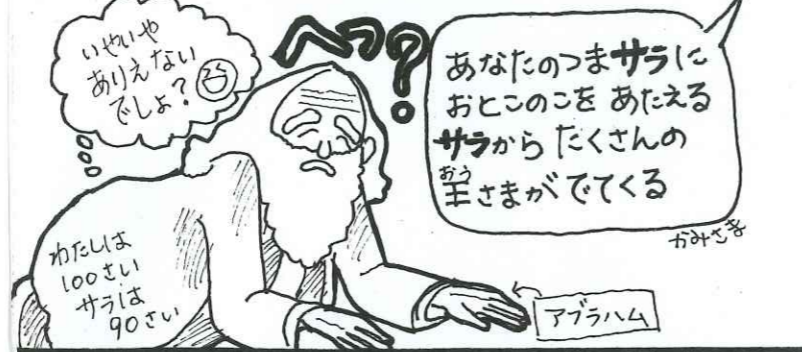 いやいや
ありえない
でしょ?
へっ?
あなたのつまサラに
おとこのこを あたえる
サラから たくさんの
おう
王さまが でてくる
かみさま
わたしは
100さい
サラは
90さい
アブラハム